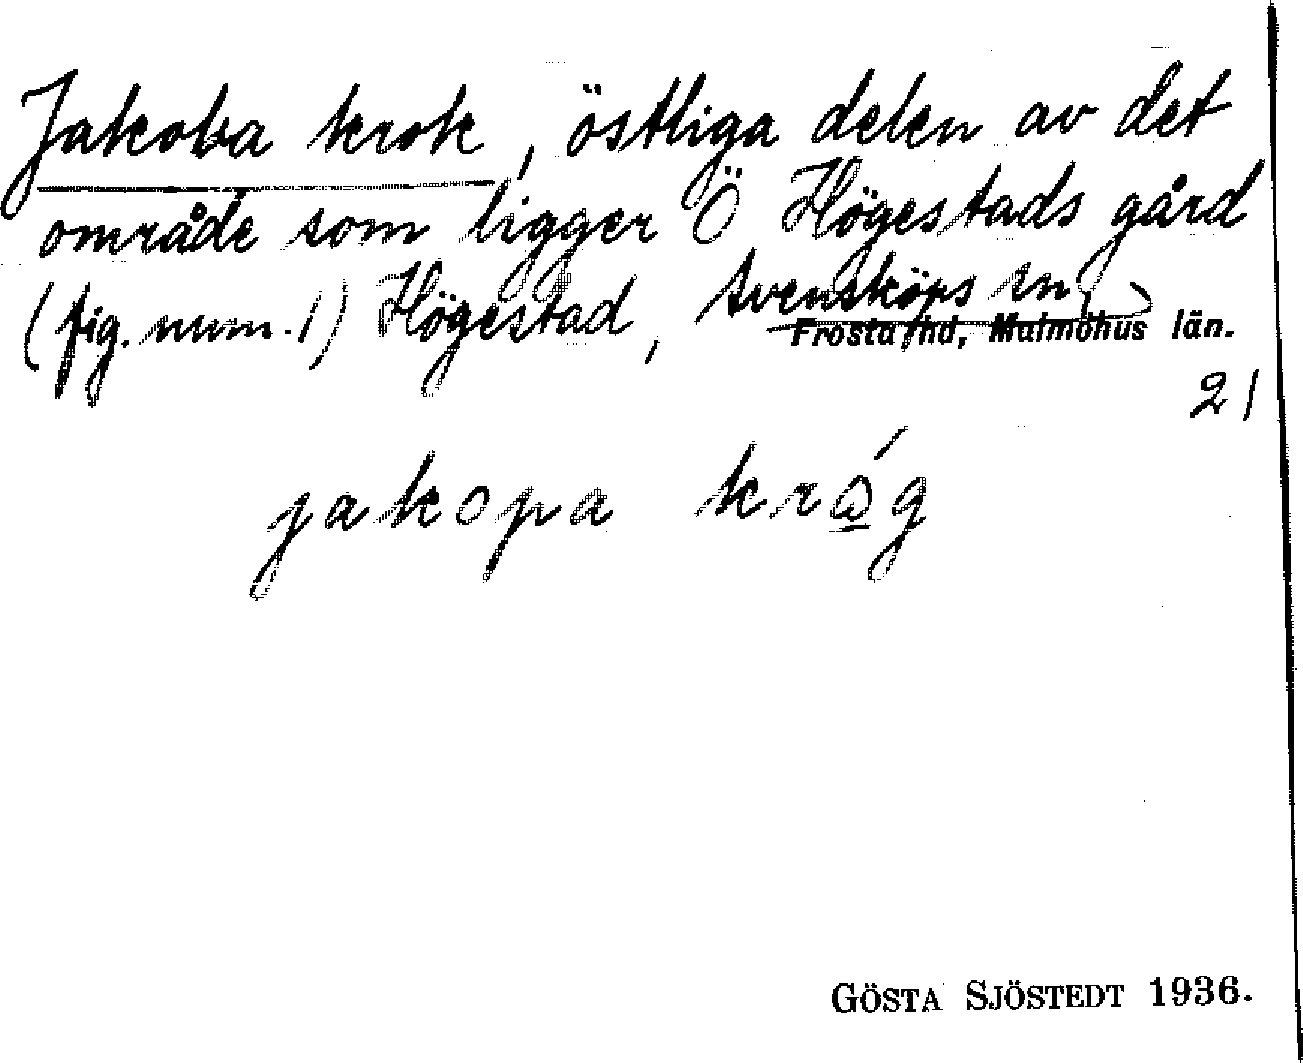 Jakoba krok, östliga delen av det
område som ligger Ö Högestads gård
(fig. num. 1) Högestad, Svensköps sn,
Frosta hd, Malmöhus län.
21
jakopa kråg
GÖSTA SJÖSTEDT 1936.